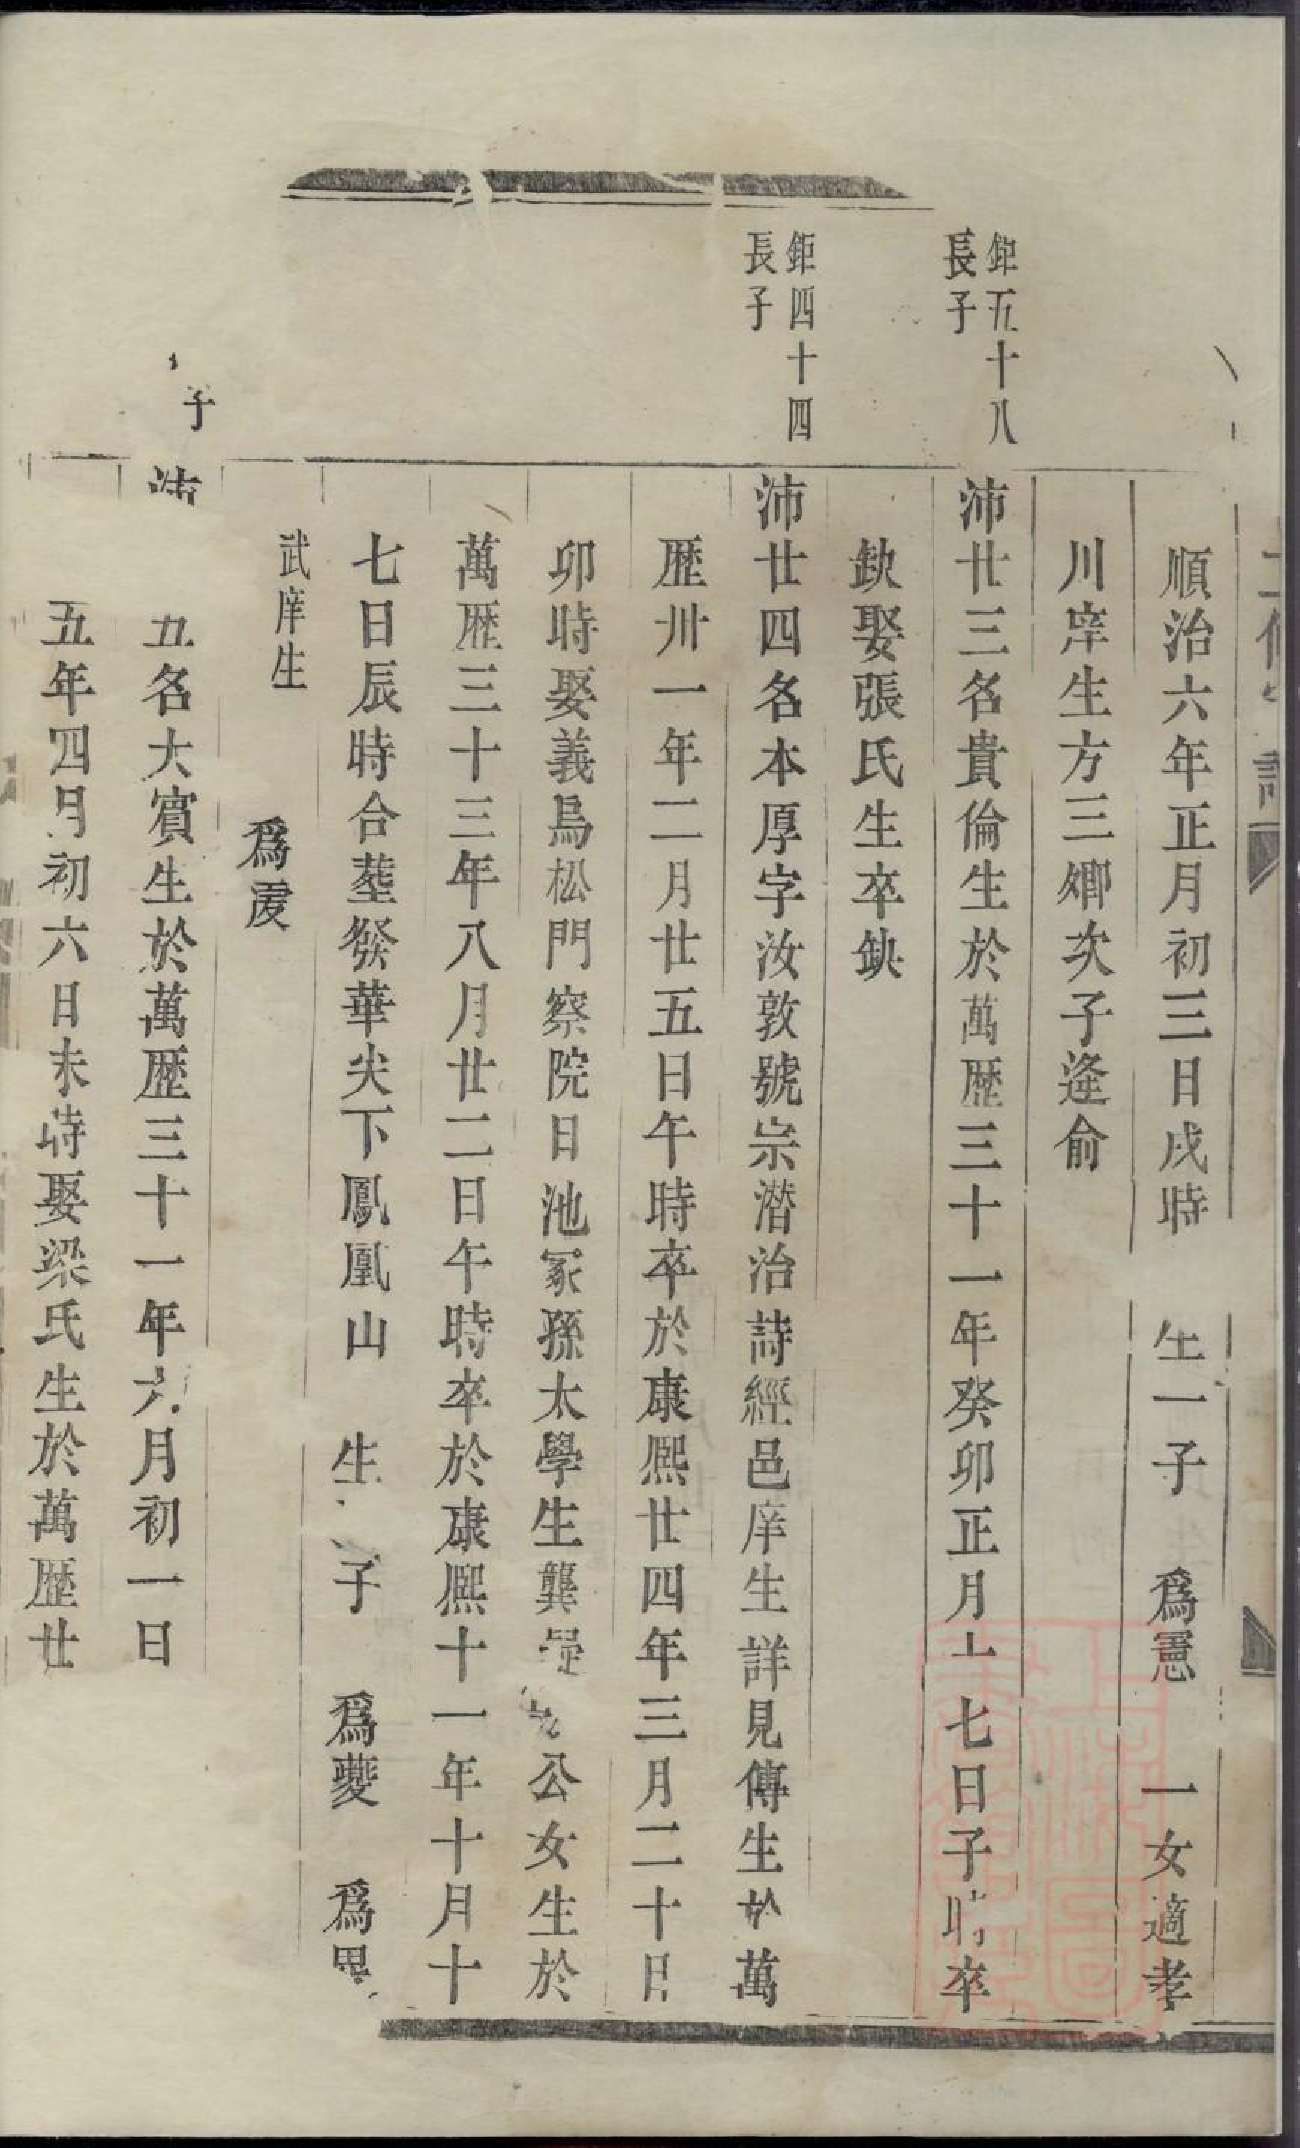 順治六年正月初三日戌時 生一子 爲憲 一女適孝
川庠生方三卿次子逢俞
鉅五十八
長子
沛廿三名貴倫生於萬歷三十一年癸卯正月 七日子時卒
缺娶張氏生卒缺
鉅四十四
長子
沛廿四名本厚字汝敦號崇潜治詩經邑庠生詳見傳生於萬
歷卅一年二月廿五日午時卒於康熈廿四年三月二十日
卯時娶義烏松門察院日池冢孫太學生龔 公女生於
萬歷三十三年八月廿二日午時卒於康熈十一年十月十
七日辰時合塟發華尖下鳳凰山 生 子 爲夔 爲
武庠生
爲
子
沛 五名大賓生於萬歷三十一年六月初一日
五年四月初六日未時娶梁氏生於萬歷廿